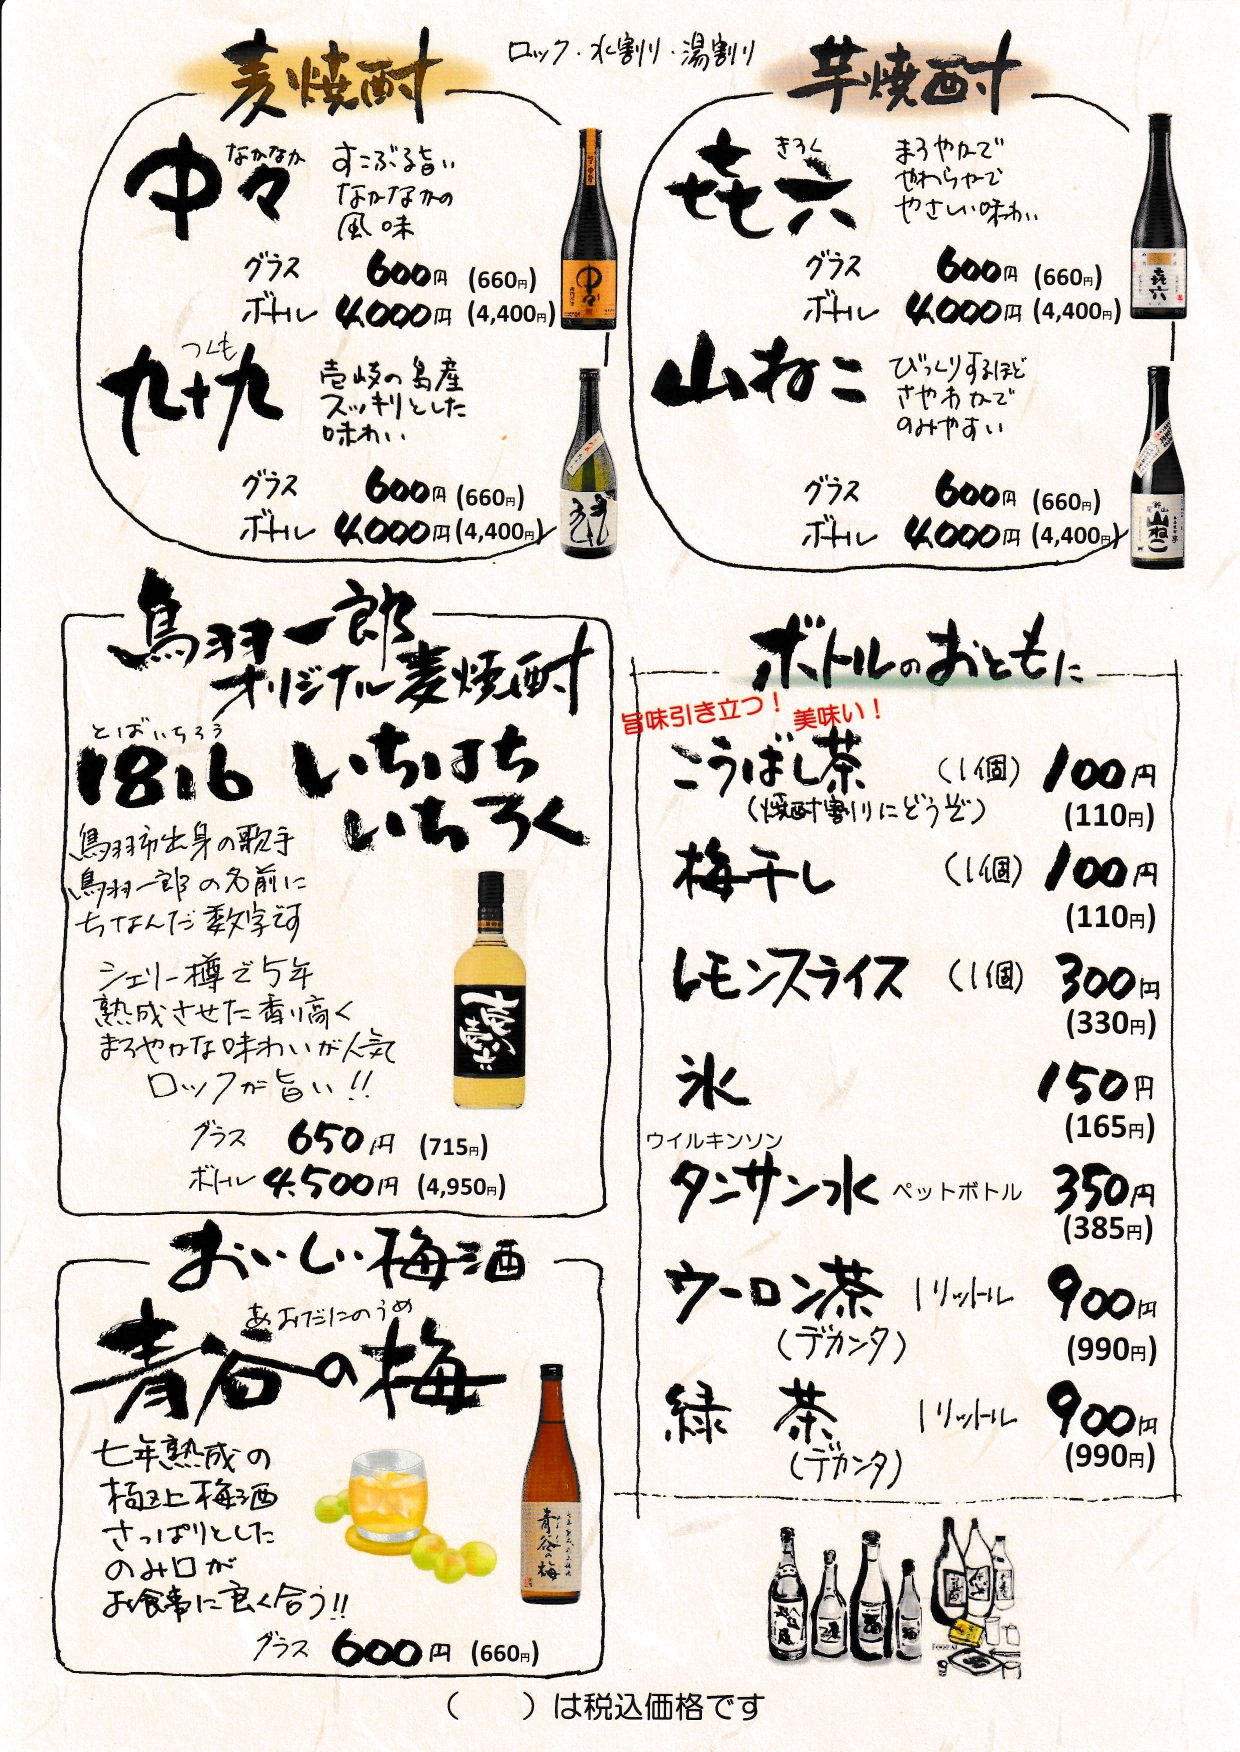 麦焼酎
ロック・水割り・湯割り
芋焼酎
なかなか
中々
すこぶる旨い
なかなかの
風味
グラス 600円 (660円)
ボトル 4,000円 (4,400円)
つくも
九十九
壱岐の島産
スッキリとした
味わい
グラス 600円 (660円)
ボトル 4,000円 (4,400円)
きろく
㐂六
まろやかで
やわらかで
やさしい味わい
グラス 600円 (660円)
ボトル 4,000円 (4,400円)
山ねこ
びっくりするほど
さやわかで
のみやすい
グラス 600円 (660円)
ボトル 4,000円 (4,400円)
中々
㐂六
山ねこ
鳥羽一郎
オリジナル麦焼酎
とばいちろう
1816 いちはち
いちろく
鳥羽市出身の歌手
鳥羽一郎の名前に
ちなんだ数字です
シェリー樽で5年
熟成させた香り高く
まろやかな味わいが人気
ロックが旨い!!
グラス 650円 (715円)
ボトル 4,500円 (4,950円)
おいしい梅酒
あおだにのうめ
青谷の梅
七年熟成の
極上梅酒
さっぱりとした
のみ口が
お食事に良く合う!!
グラス 600円 (660円)
青谷の梅
ボトルのおともに
旨味引き立つ！ 美味い！
こうばし茶 (1個) 100円
(焼酎割りにどうぞ) (110円)
梅干し (1個) 100円
(110円)
レモンスライス (1個) 300円
(330円)
氷 150円
(165円)
ウイルキンソン
タンサン水 ペットボトル 350円
(385円)
ウーロン茶 1リットル 900円
(デカンタ) (990円)
緑茶 1リットル 900円
(デカンタ) (990円)
（　　）は税込価格です